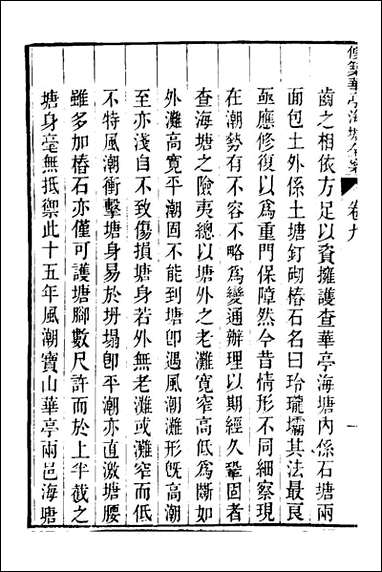 修築華亭海塘全案
卷九
一
齒之相依方足以資擁護查華亭海塘內係石塘兩
面包土外係土塘釘砌樁石名曰玲瓏壩其法最良
亟應修復以爲重門保障然今昔情形不同細察現
在潮勢有不容不略爲變通辦理以期經久鞏固者
查海塘之險夷總以塘外之老灘寬窄高低爲斷如
外灘高寬平潮固不能到塘卽遇風潮灘形旣高潮
至亦淺自不致傷損塘身若外無老灘或灘窄而低
不特風潮衝擊塘身易於坍塌卽平潮亦直激塘腰
雖多加樁石亦僅可護塘腳數尺許而於上半截之
塘身毫無抵禦此十五年風潮寶山華亭兩邑海塘